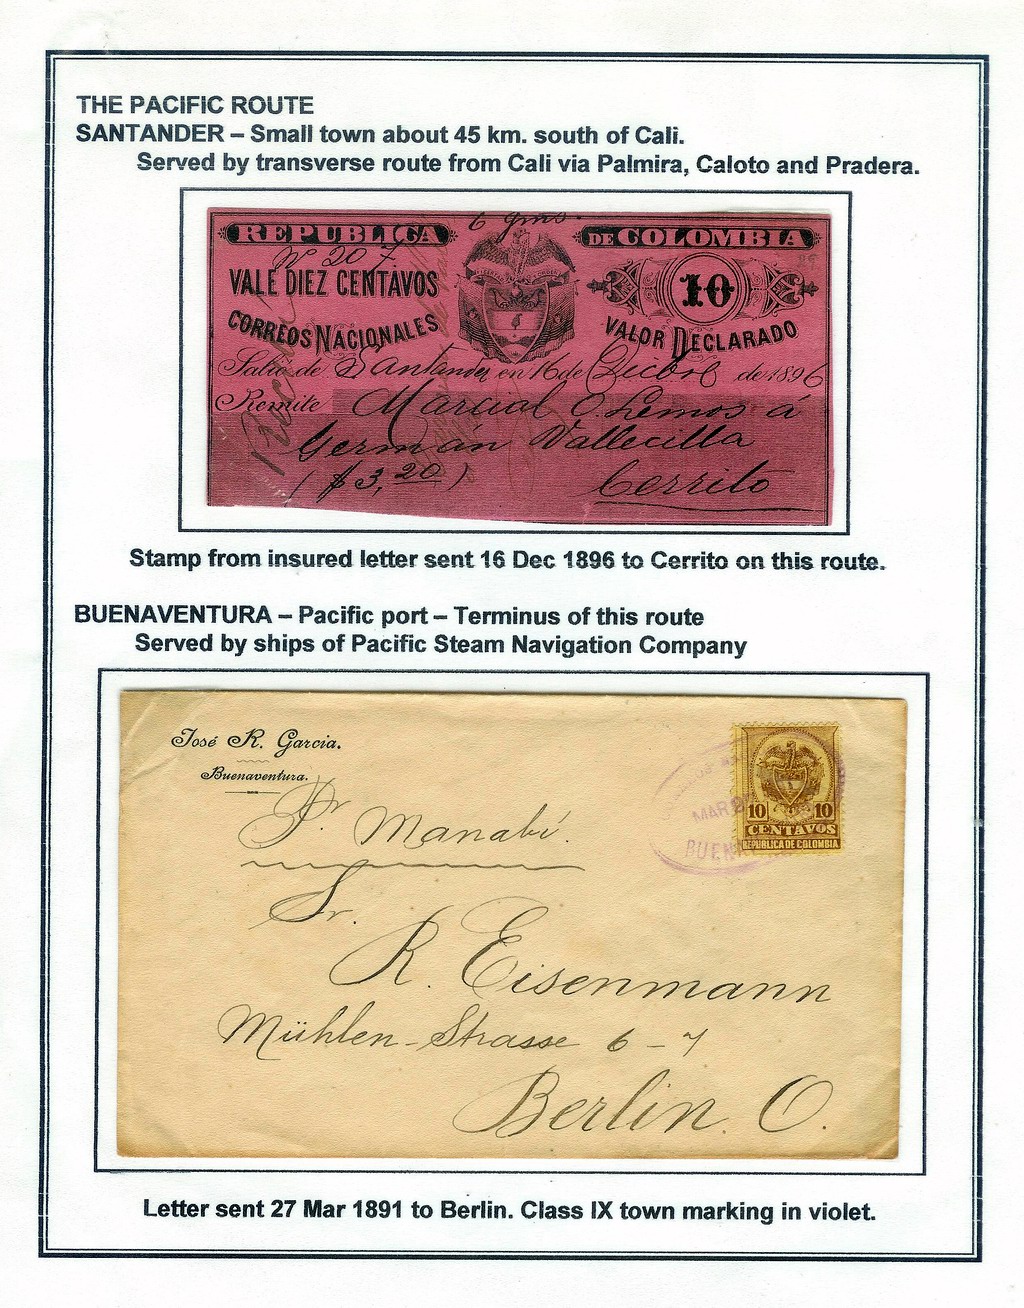 THE PACIFIC ROUTE
SANTANDER – Small town about 45 km. south of Cali.
Served by transverse route from Cali via Palmira, Caloto and Pradera.
6 gms.
REPUBLICA DE COLOMBIA
Nº 207
VALE DIEZ CENTAVOS
10
CORREOS NACIONALES
VALOR DECLARADO
Salió de Santander en 16 de Dicbre de 1896
Remite Marcial O. Lemos á
Germán Vallecilla
($3,20)
Cerrito
Stamp from insured letter sent 16 Dec 1896 to Cerrito on this route.
BUENAVENTURA – Pacific port – Terminus of this route
Served by ships of Pacific Steam Navigation Company
José R. Garcia.
Buenaventura.
Pr. Manabí.
MAR
BUEN
10 10
CENTAVOS
REPUBLICA DE COLOMBIA
Sr.
R. Eisenmann
Mühlen-Strasse 6-7
Berlin. O.
Letter sent 27 Mar 1891 to Berlin. Class IX town marking in violet.